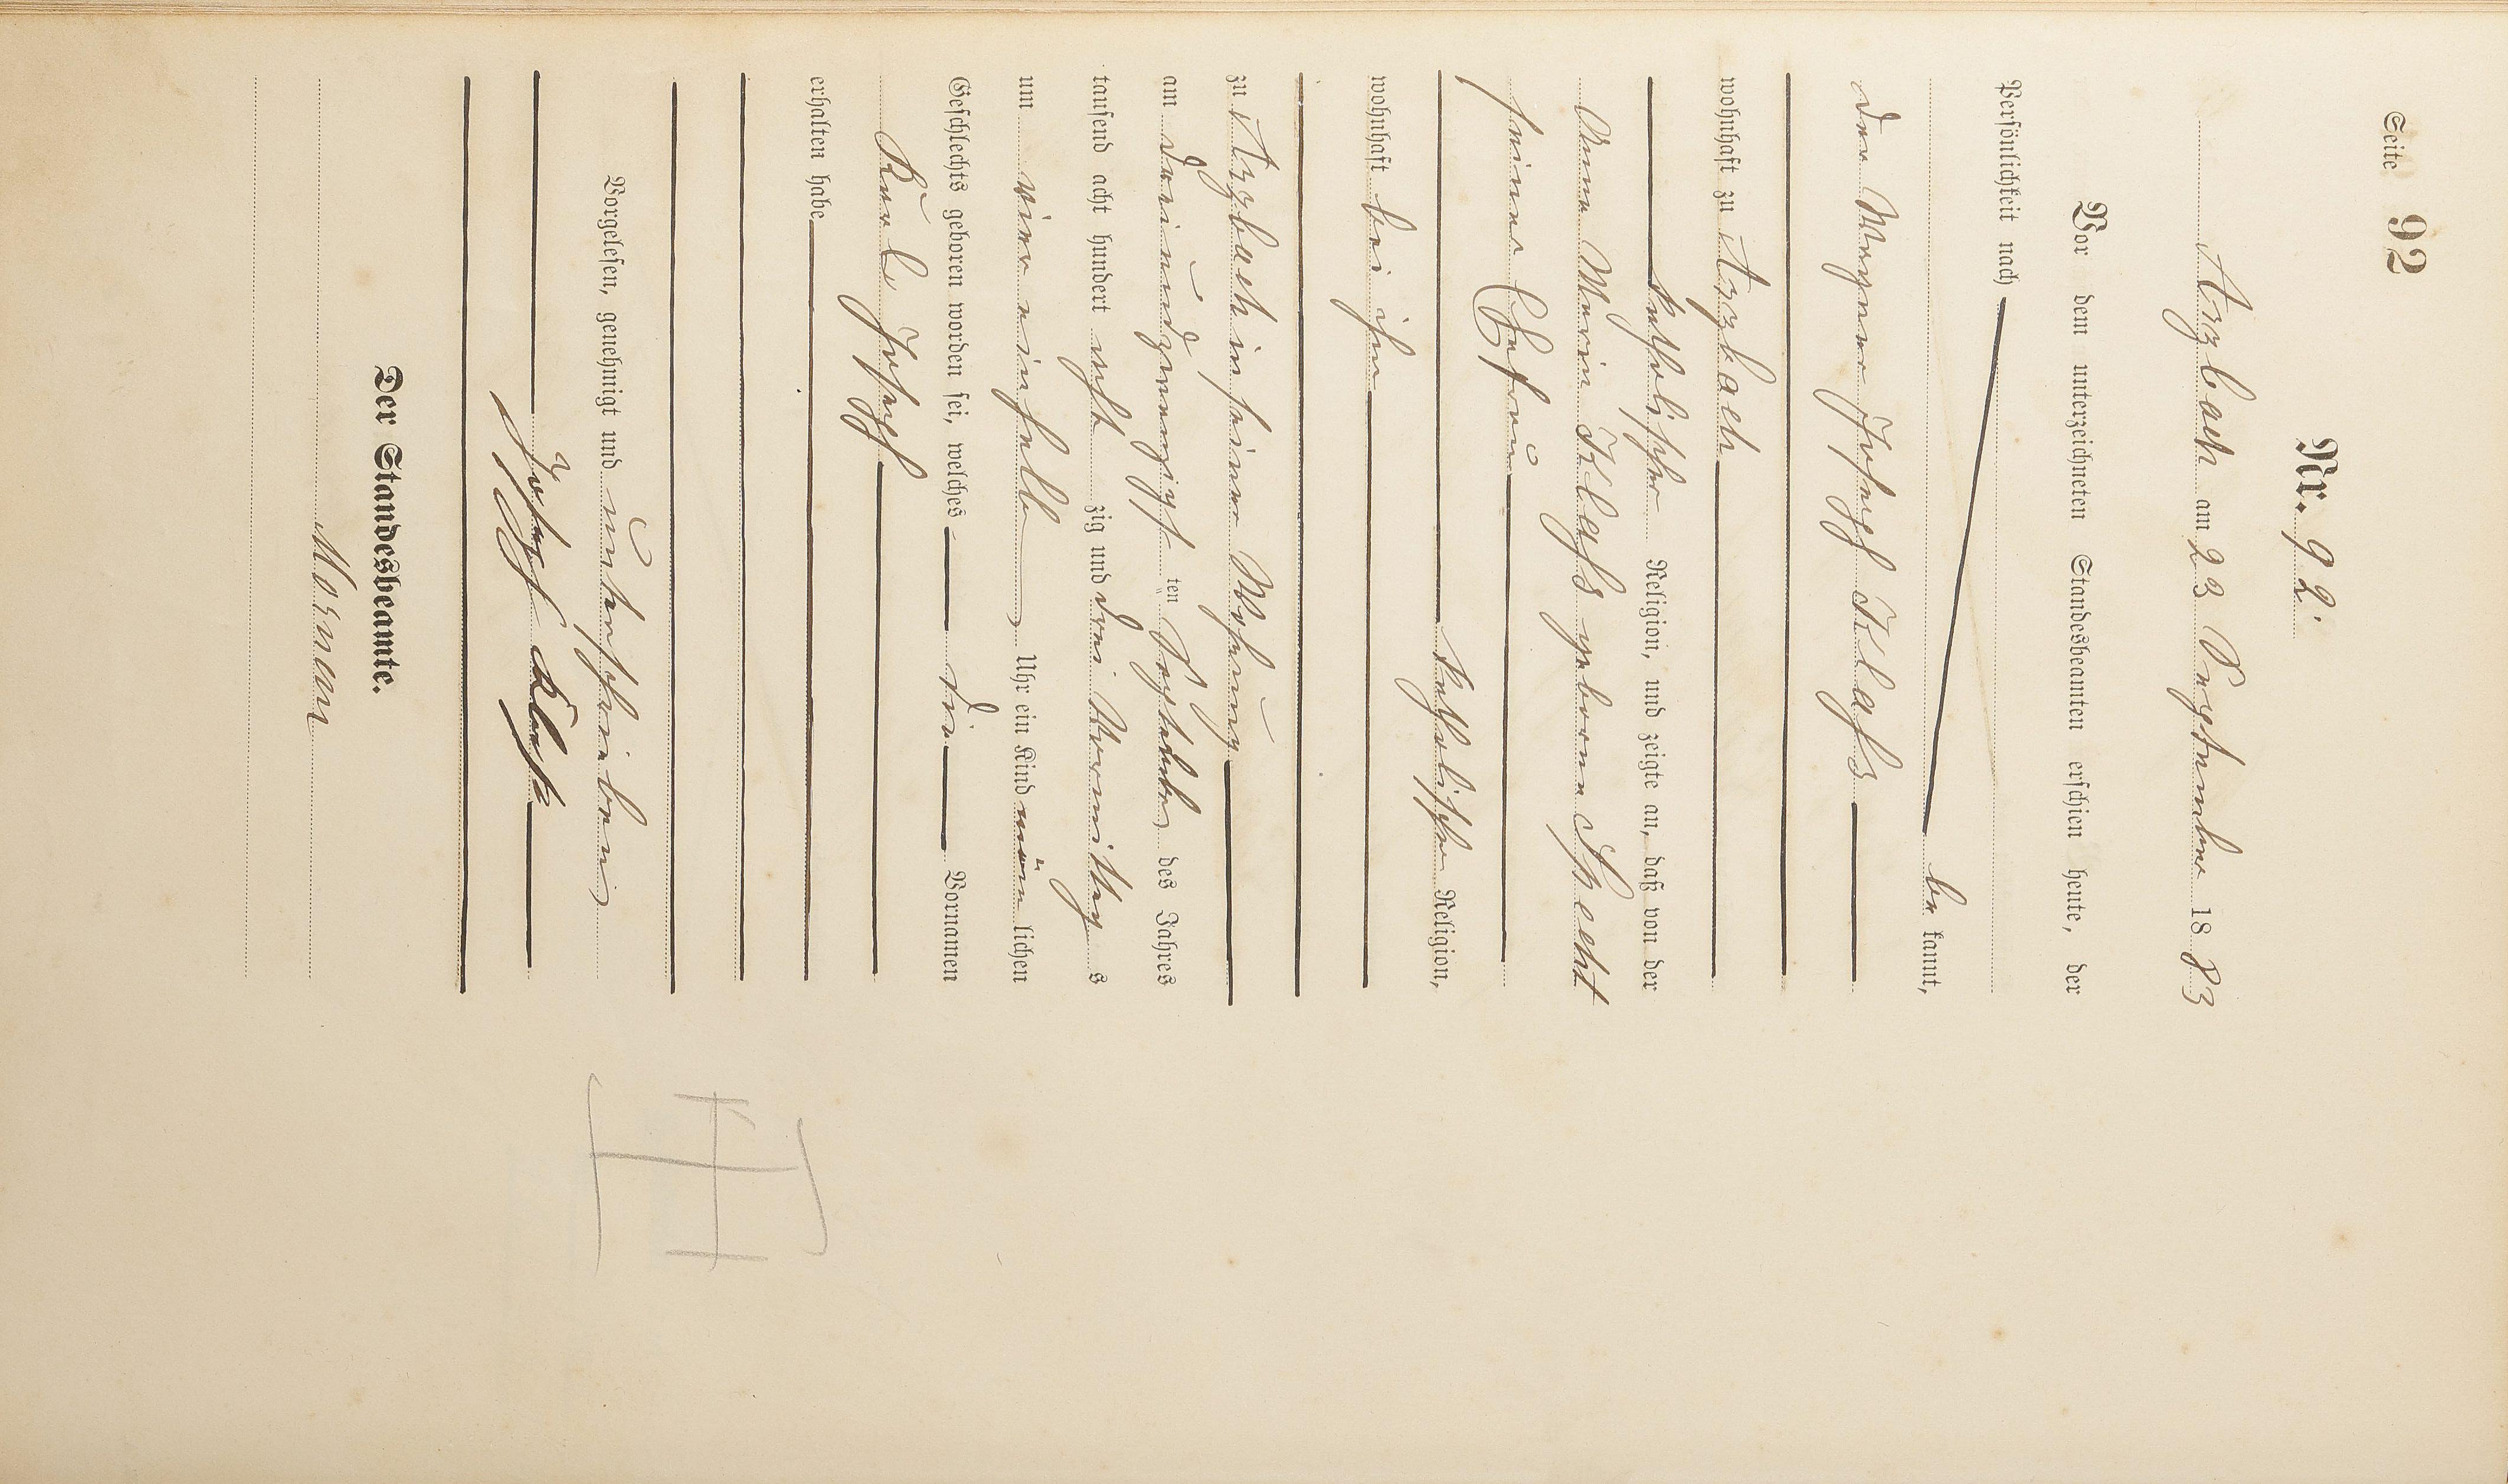 Seite 92
Nr. 92.
Arzbach am 23 September 1883
Vor dem unterzeichneten Standesbeamten erschien heute, der
Persönlichkeit nach
be kannt,
der Wagner Joseph Klaß
wohnhaft zu Arzbach
katholischer Religion, und zeigte an, daß von der
Anna Maria Klaß geborene Specht
seiner Ehefrau
katholischer Religion,
wohnhaft bei ihm
zu Arzbach in seiner Wohnung
am dreiundzwanzigst ten September des Jahres
tausend acht hundert acht zig und drei Vormittag s
um vier einhalb Uhr ein Kind männ lichen
Geschlechts geboren worden sei, welches die Vornamen
Karl Joseph
erhalten habe
Vorgelesen, genehmigt und unterschrieben
Joseph Klaß
Der Standesbeamte.